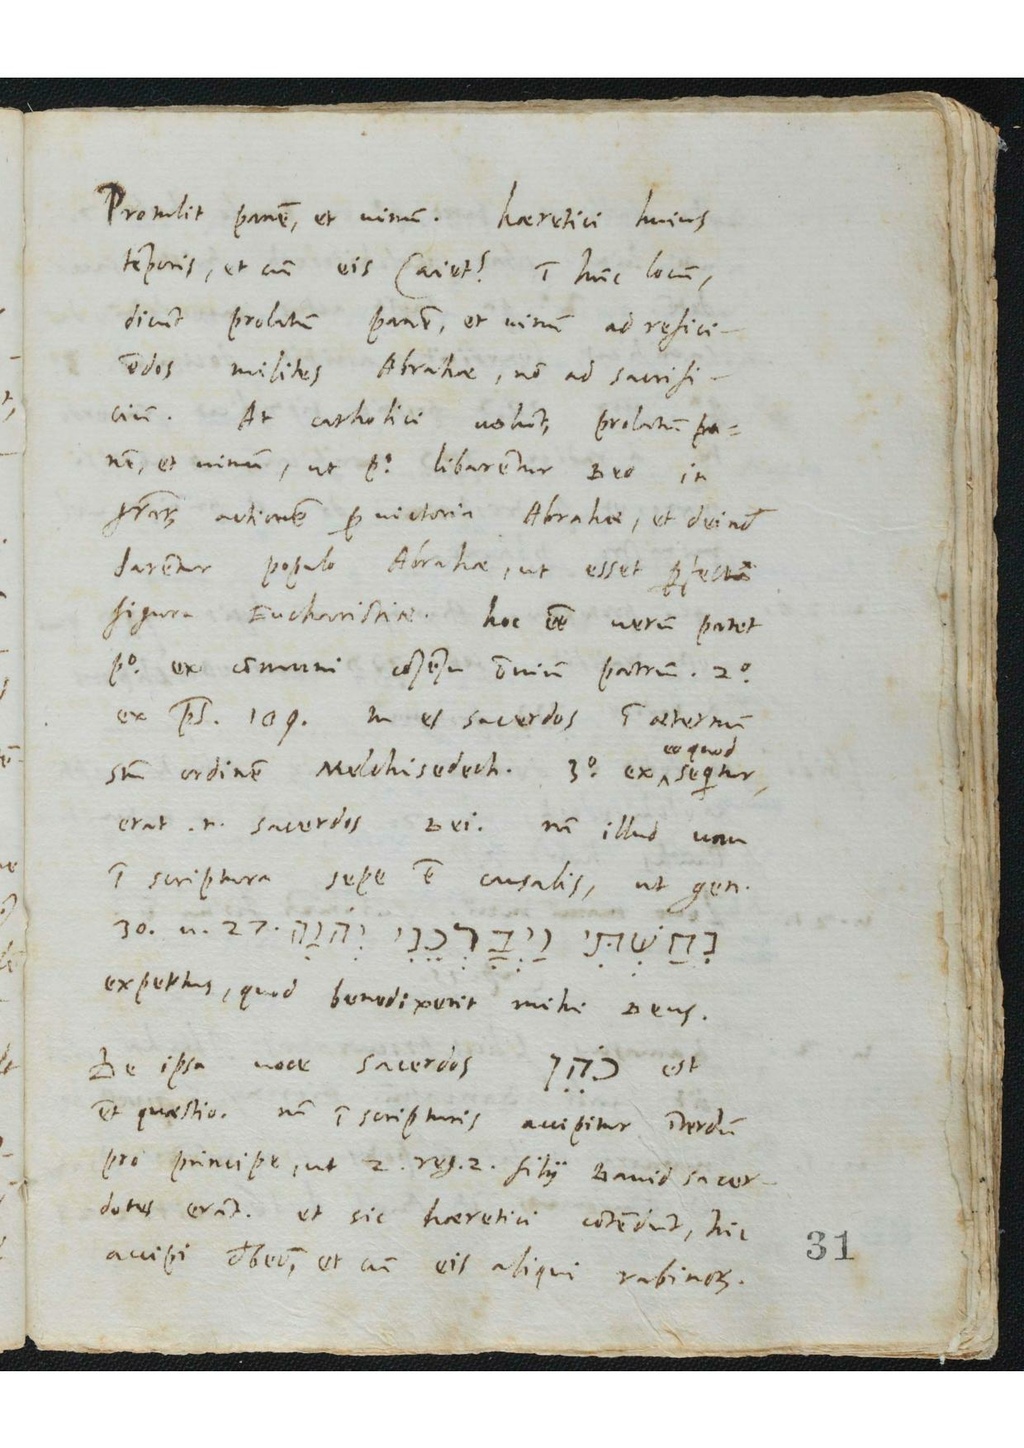 Protulit panē, et uinū. hæretici huius
tēporis, et cū eis Caiet? ī hūc locū,
dicūt prolatū panē, et uinū ad refici-
ēdos milites Abrahæ, nō ad sacrifi-
ciū. At catholici uolūt, prolatū pa=
nē, et uinū, ut pº. libarētur Deo in
grār̄ actionē p uictoria Abrahæ, et deind̄
darētur populo Abrahæ, ut esset pfecta
figura Eucharistiæ. hoc ēē uerū patet
pº. ex cōmuni cōsēsu ōniū patrū. 2º.
ex ps̄. 109. tu es sacerdos ī æternū
s̄m ordinē Melchisedech. 3º. ex ^eo quod seqtur,
erat .n. sacerdos Dei. nā illud uau
ī scriptura sepe ē causalis, ut gen.
30. u. 27. נִחַשְׁתִּי וַיְבָרְכֵנִי יְהוָה
expertus, quod benedixerit mihi Deus.
De ipsa uoce sacerdos כֹּהֵן est
ēt quæstio. nā ī scripturis accipitur īterdū
pro principe, ut 2. reg. 2. filij David sacer-
dotes erāt. et sic hæretici cōtēdūt, hic
accipi d̄bere, et cū eis aliqui rabinor̄.
31